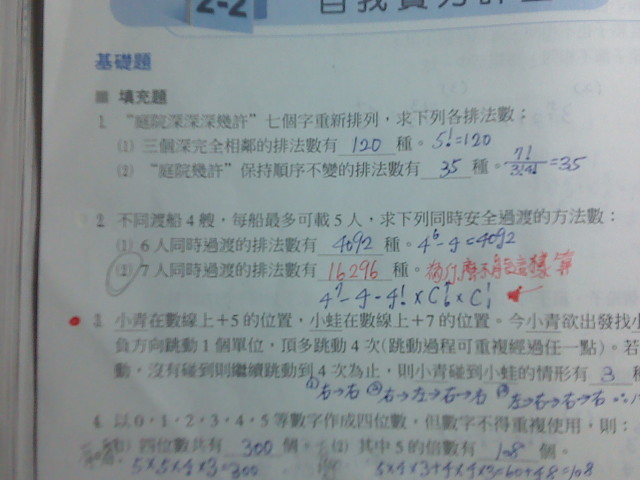 2-2 自我實力評量
基礎題
■ 填充題
1. “庭院深深深幾許”七個字重新排列，求下列各排法數：
(1) 三個深完全相鄰的排法數有 120 種。5!=120
(2) “庭院幾許”保持順序不變的排法數有 35 種。7!/3!4!=35
2. 不同渡船4艘，每船最多可載5人，求下列同時安全過渡的方法數：
(1) 6人同時過渡的排法數有 4092 種。4⁶-4=4092
(2) 7人同時過渡的排法數有 16296 種。為什麼不能這樣算
4⁷-4-4!×C
3. 小青在數線上+5的位置，小蛙在數線上+7的位置。今小青欲出發找小
負方向跳動1個單位，頂多跳動4次(跳動過程可重複經過任一點)。若
動，沒有碰到則繼續跳動到4次為止，則小青碰到小蛙的情形有 3 種
①右→右 ②右→左→右→右 ③左→右→右→右
4. 以0，1，2，3，4，5等數字作成四位數，但數字不得重複使用，則：
(1) 四位數共有 300 個。(2) 其中5的倍數有 108 個。
5×5×4×3=300 5×4×3+4×4×3=60+48=108